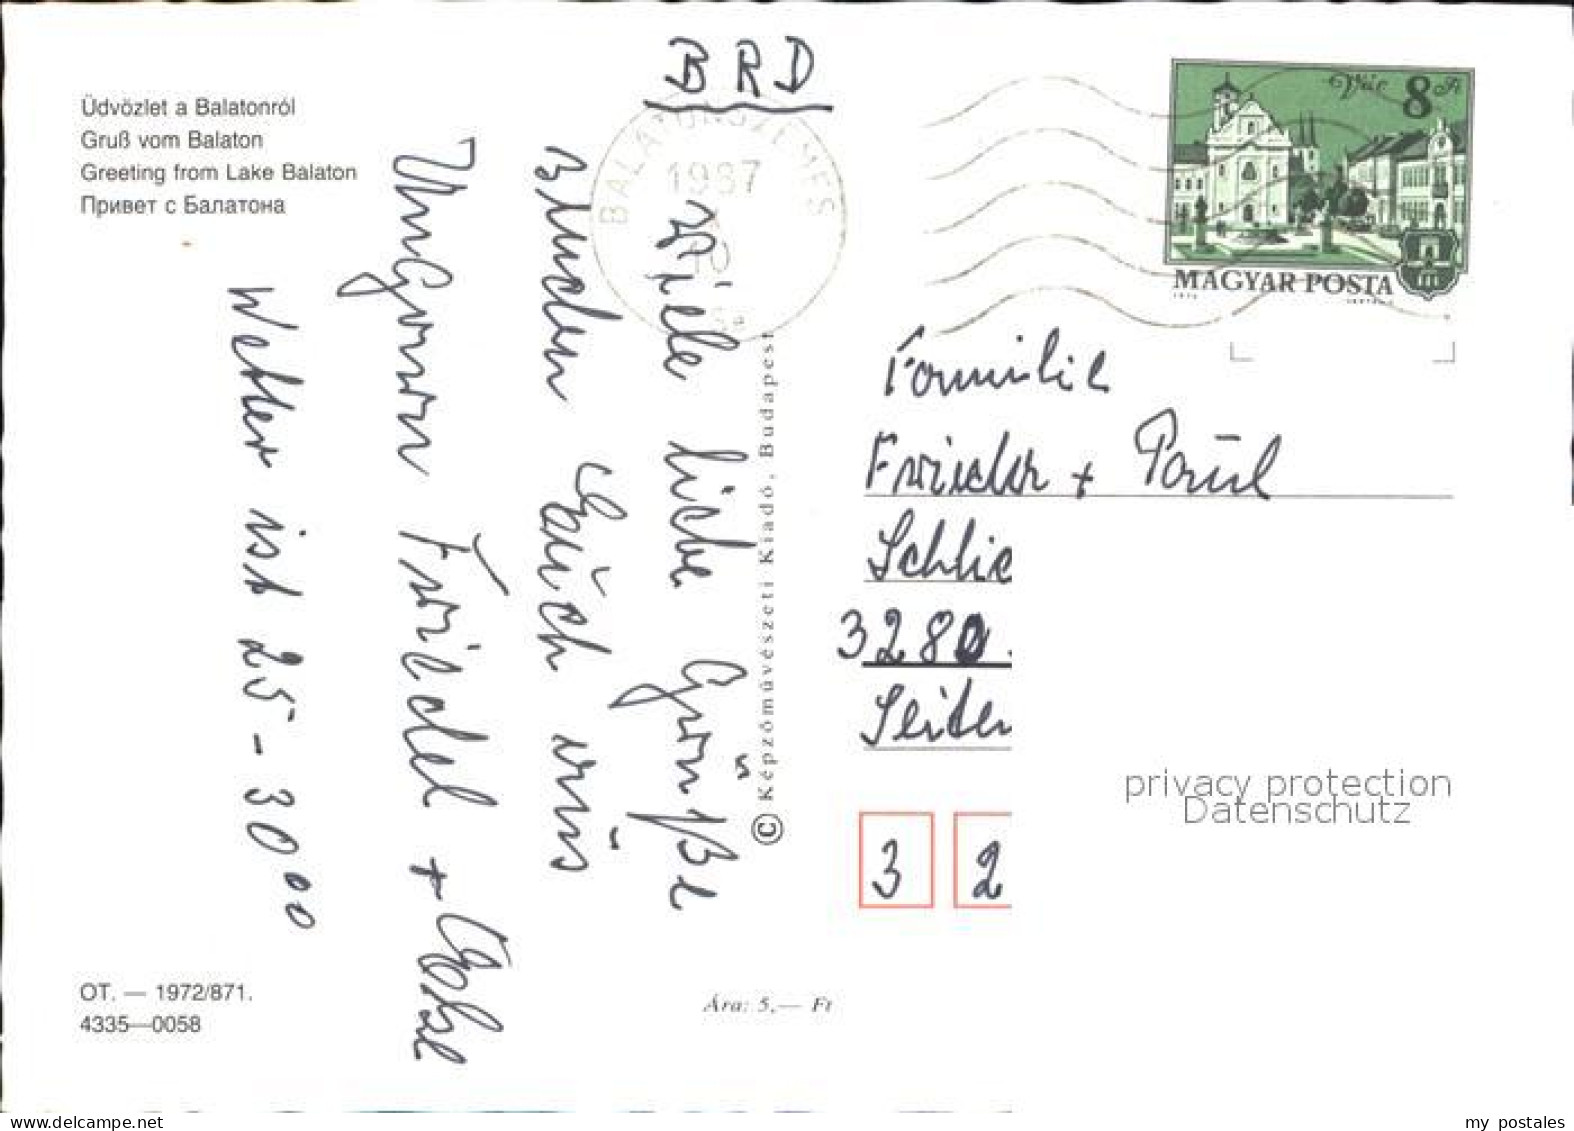 Üdvözlet a Balatonról
Gruß vom Balaton
Greeting from Lake Balaton
Привет с Балатона
BRD
BALATONSZEMES
1987
Vác 8 Ft
MAGYAR POSTA
Viele liebe Grüße
senden Euch aus
Ungarn Friedel +
Wetter ist 25-30°°
Familie
Frieder + Paul
Schlie
3280
Seiten
3 2
© Képzőművészeti Kiadó, Budapest
privacy protection
Datenschutz
OT. — 1972/871.
4335—0058
Ára: 5,— Ft
www.delcampe.net
my postales